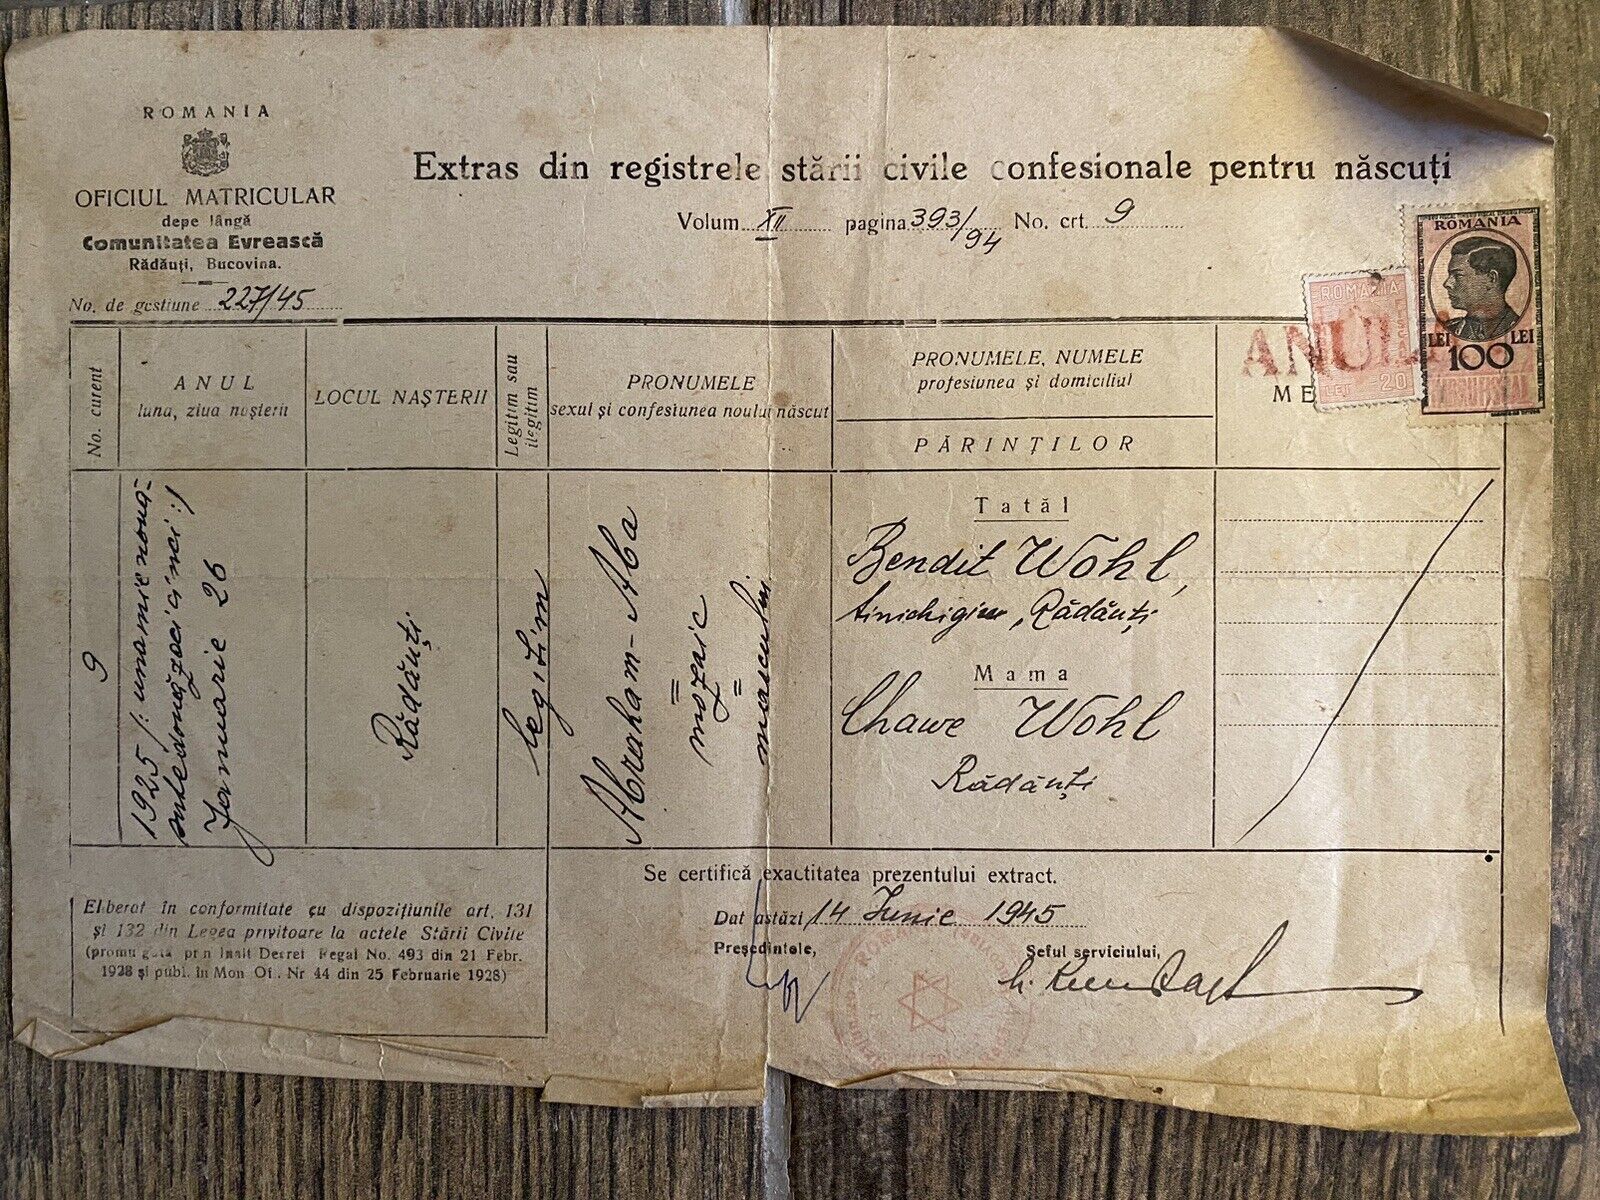 ROMANIA
OFICIUL MATRICULAR
depe lângă
Comunitatea Evrească
Rădăuți, Bucovina.
No. de gestiune 227/45
Extras din registrele stării civile confesionale pentru născuți
Volum XII pagina 393/94 No. crt. 9
ROMANIA
LEI 20
ROMANIA
LEI 100 LEI
ANUL
No. curent
ANUL
luna, ziua nașterii
LOCUL NAȘTERII
Legitim sau
ilegitim
PRONUMELE
sexul și confesiunea noului născut
PRONUMELE, NUMELE
profesiunea și domiciliul
PĂRINȚILOR
ME
9
1925 /: una mie nouă-
sute douăzeci cinci :/
Januarie 26
Rădăuți
legitim
Abraham-Aba
mozaic
masculin
Tatăl
Bendit Wohl,
tinichigiu, Rădăuți
Mama
Chawe Wohl
Rădăuți
Se certifică exactitatea prezentului extract.
Dat astăzi 14 Iunie 1945
Președintele,
Șeful serviciului,
Eliberat în conformitate cu dispozițiunile art. 131
și 132 din Legea privitoare la actele Stării Civile
(promulgată prin Inalt Decret Regal No. 493 din 21 Febr.
1928 și publ. în Mon Of. Nr 44 din 25 Februarie 1928)